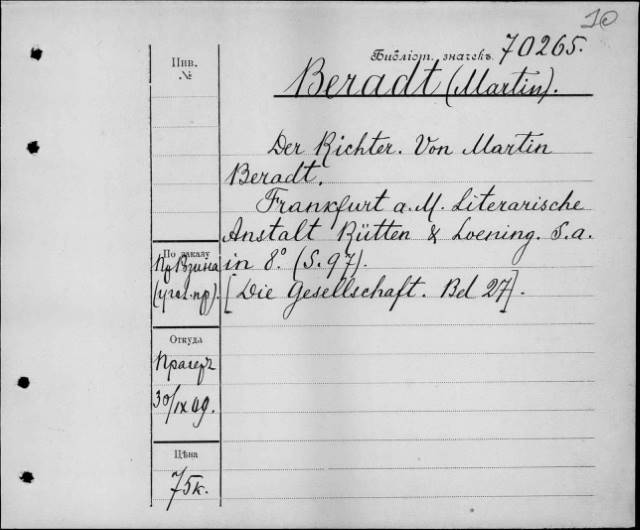 10
Библіот. значекъ 70265.
Инв.
№
Beradt (Martin).
Der Richter. Von Martin
Beradt.
Frankfurt a. M. Literarische
Anstalt Rütten & Loening. S. a.
in 8.° (S. 97).
[Die Gesellschaft. Bd 27].
По заказу
(угол. пр.).
Откуда
Прагеръ
30/IX 09.
Цѣна
75к.